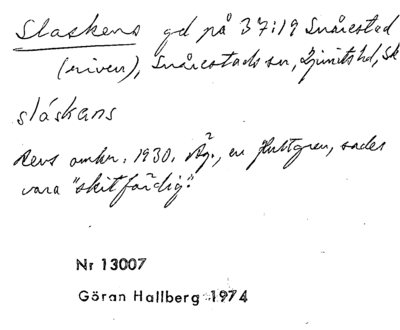 Slaskens gd på 37:19 Snårestad
(riven), Snårestads sn, Ljunits hd, Sk
slåskans
Revs omkr. 1930. Äg., en Hultgren, sades
vara "skitfärdig".
Nr 13007
Göran Hallberg 1974